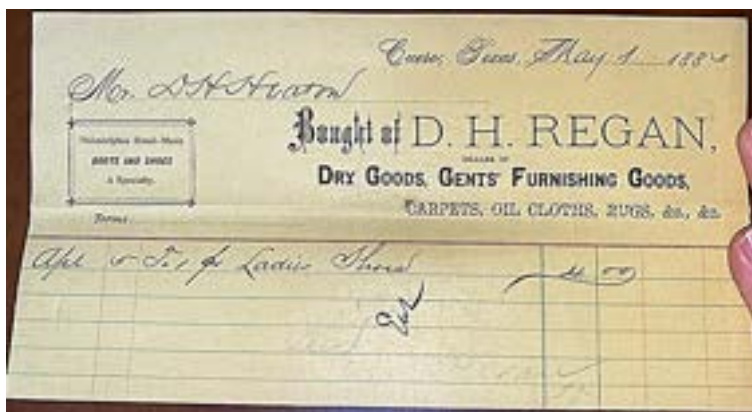 Cuero, Texas, May 1 188
Mr. D H Heaton
Philadelphia Hand-Made
BOOTS AND SHOES
A Specialty.
Bought of D. H. REGAN,
DEALER IN
DRY GOODS, GENTS' FURNISHING GOODS,
CARPETS, OIL CLOTHS, RUGS, &c., &c.
Terms
Apl To 1 pr Ladies Shoes 4 00